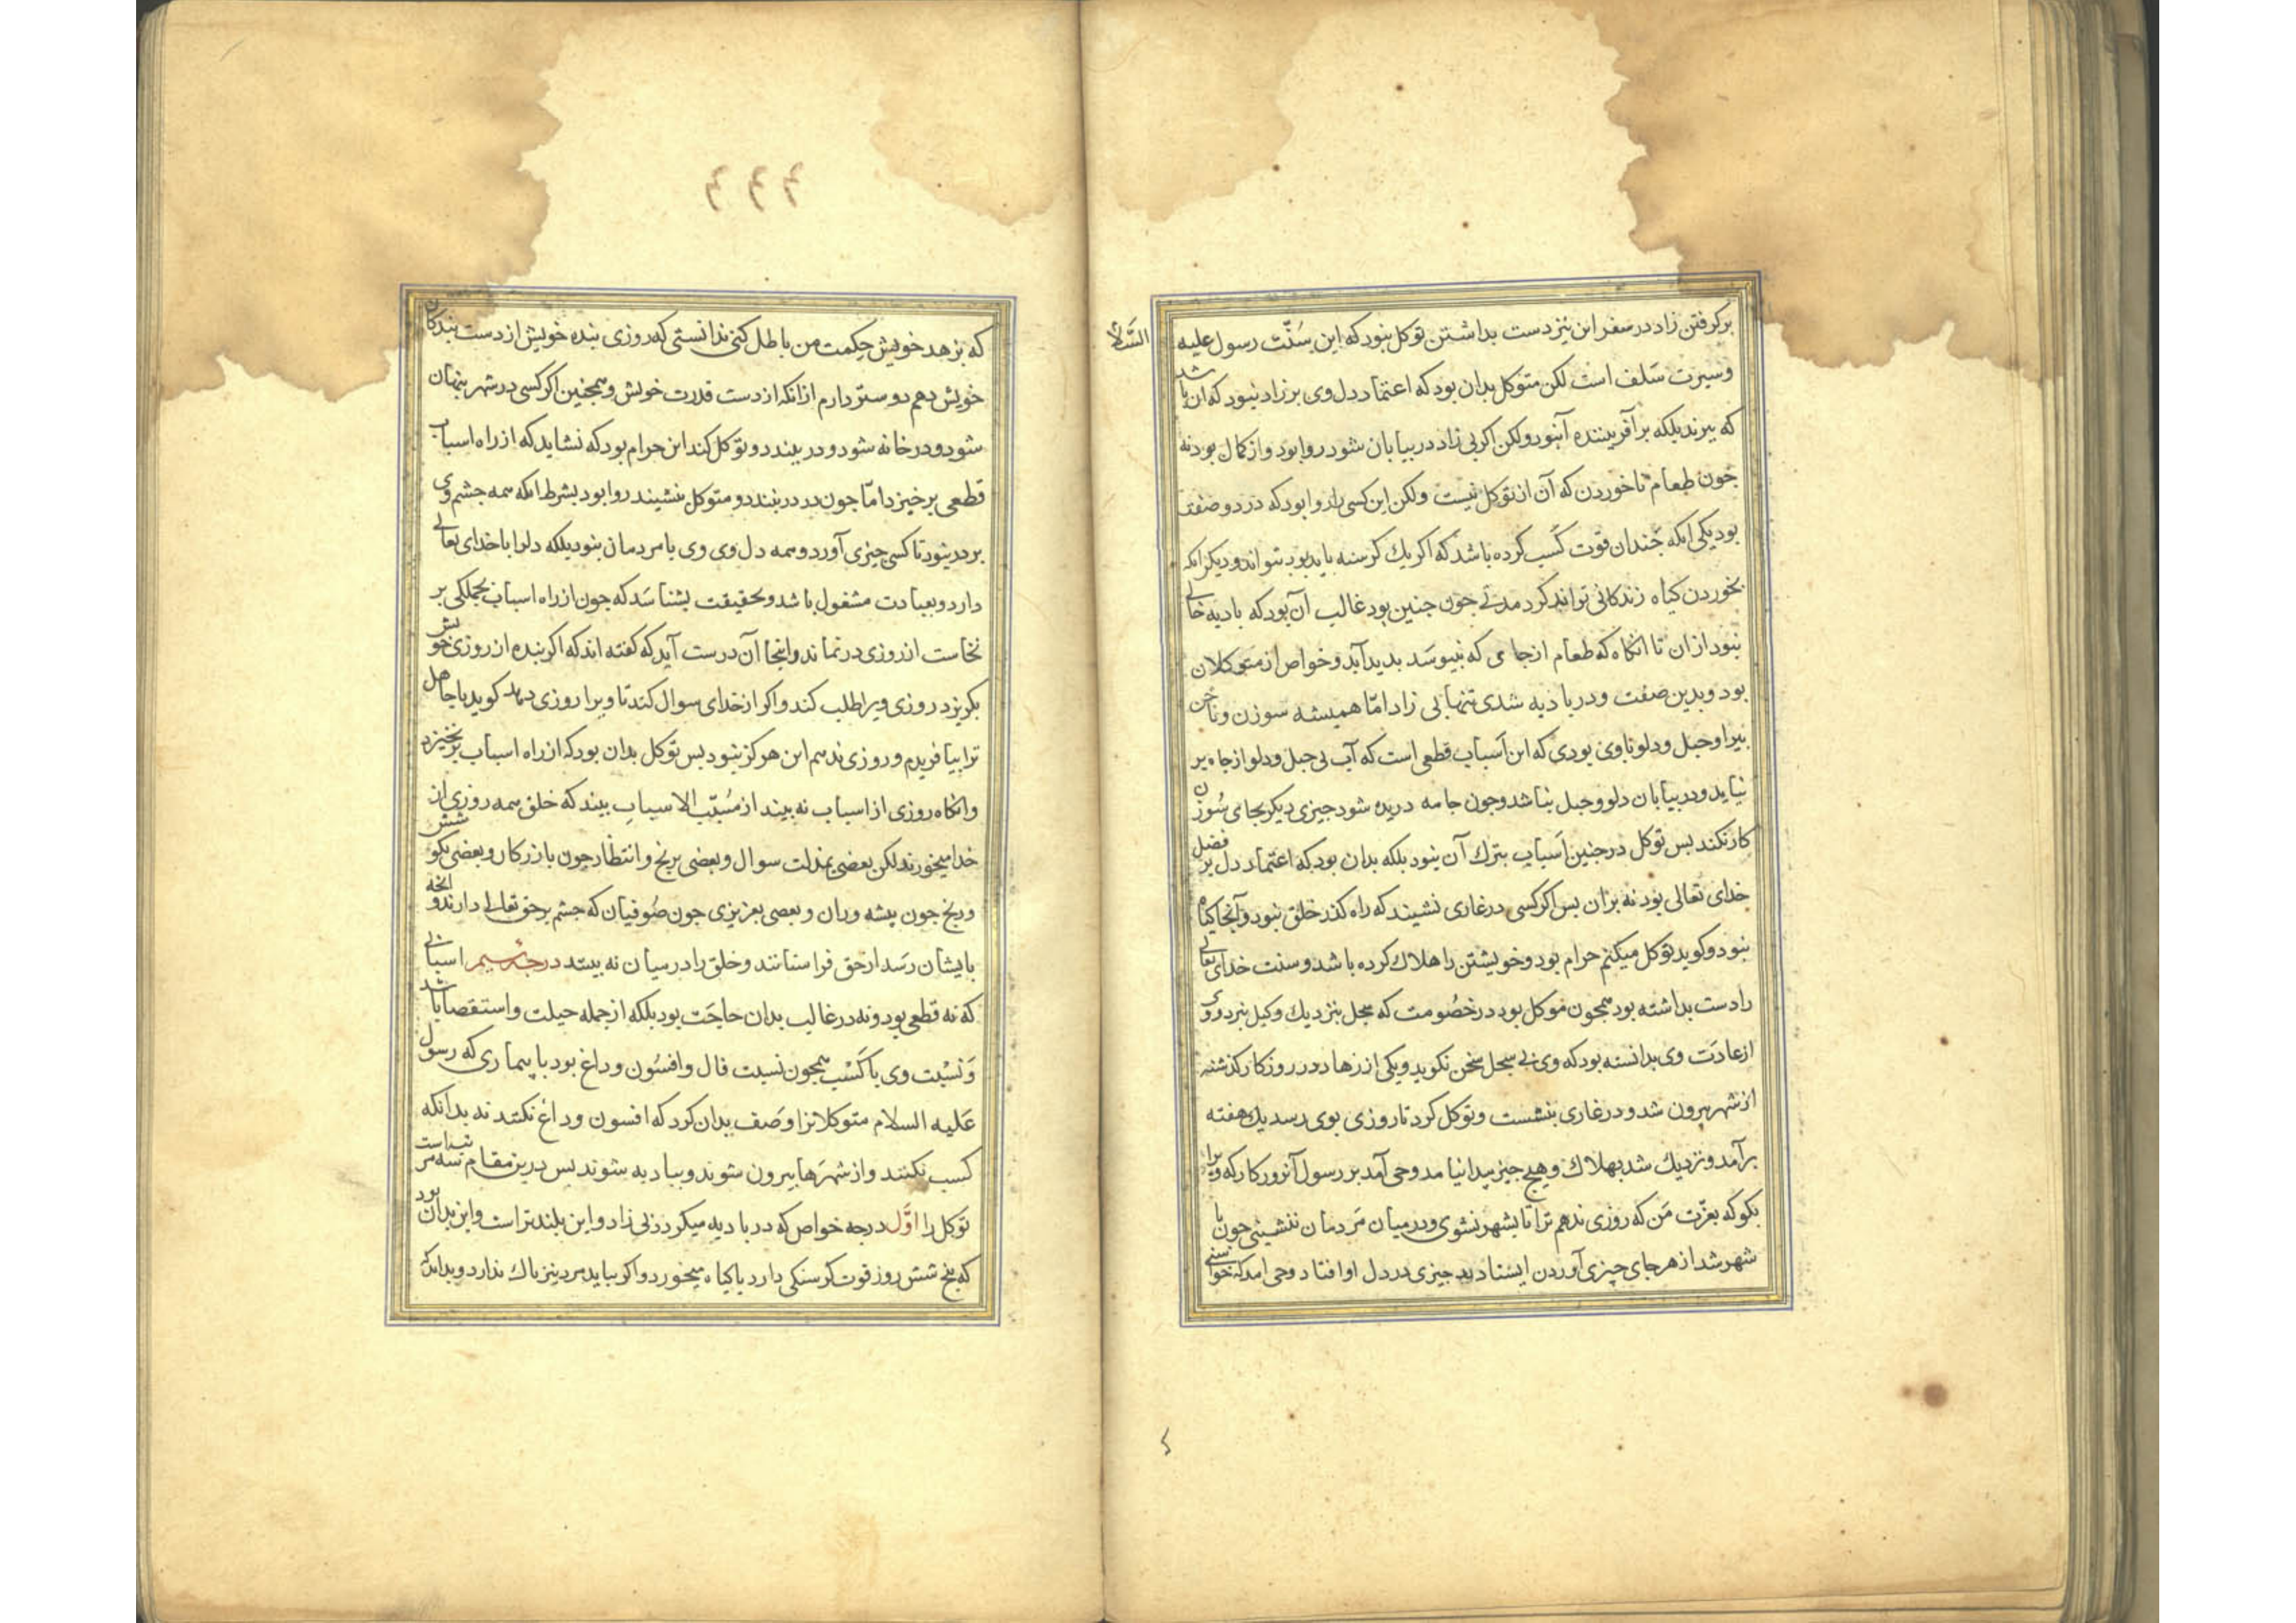 برکرفتن زاد در سفر این نیز دست بداشتن توکل نبود که این سُنّت رسول علیه السَّلام
وسیرت سَلف است لکن متوکل بدان بود که اعتماد دل وی بر زاد نبود که ان باشد
که ببرند بلکه بر آفریننده آنبود ولکن اکر بی زاد در بیابان شود روا بود واز کمال بود نه
جون طعام ناخوردن که آن از توکل نیست ولکن این کسی را روا بود که در دو صفت
بود یکی انکه جندان قوت کسب کرده باشد که اکر یك کرسنه باید بود بتواند ودیکر انکه
بخوردن کیاه زندکانی تواند کرد مدتی جون جنین بود غالب آن بود که بادیه خالی
نبود ازان تا انکاه که طعام از جایی که نبیوسَد بدید آید وخواص از متوکلان
بود وبدین صفت ودر بادیه شدی تنها بی زاد امّا همیشه سوزن وناخن
بیرا وحبل ودلو باوی بودی که این اَسباب قطعی است که آب بی حبل ودلو از جاه بر
نیاید ودر بیابان دلو وحبل نباشد وجون جامه دریده شود جیزی دیکر بجای سُوزن
کار نکند بس توکل در جنین اَسباب بترك آن نبود بلکه بدان بود که اعتماد دل بر فضل
خدای تعالی بود نه بران بس اکر کسی در غاری نشیند که راه کذر خلق نبود وآنجا کیاه
نبود وکوید توکل میکنم حرام بود وخویشتن را هلاك کرده باشد وسنت خدای تعالی
را دست بداشته بود همجون موکل بود در خصُومت که سجل بنزدیك وکیل نبرد ووی
از عادَت وی بدانسته بود که وی بی سجل سخن نکوید ویکی از زهاد در روزکار کذشته
از شهر بیرون شد ودر غاری بنشست وتوکل کرد تا روزی بوی رسد یك هفته
برآمد ونزدیك شد بهلاك وهیج جیز بیدا نیامد وحی آمد بر رسول آنروزکار که ویرا
بکو که بعزّت مَن که روزی ندهم ترا تا بشهر نشوی ودر میان مَردمان ننشینی جون با
شهر شد از هر جای چیزی آوردن ایستادند جیزی در دل او افتاد وحی امد که خواستی
٤٤٤
که بزهد خویش حکمت من باطل کنی ندانستی که روزی بنده خویش از دست بندکان
خویش دهم دوستر دارم از انکه از دست قدرت خویش وهمجنین اکر کسی در شهر بنهان
شود ودر خانه شود ودر ببندد وتوکل کند این حرام بود که نشاید که از راه اسباب
قطعی برخیزد امّا جون در در نبندد ومتوکل بنشیند روا بود بشرط انکه همه جشم وی
بر در نبود تا کسی چیزی آورد وهمه دل وی وی با مردمان نبود بلکه دل وا با خدای تعالی
دارد وبعبادت مشغول باشد وبحقیقت بشناسَد که جون از راه اسباب بجملکی بر
نخاست از روزی درنماند واینجا آن درست آید که کفته اند که اکر بنده از روزی خویش
بکریزد روزی ویرا طلب کند واکر از خدای سوال کند تا ویرا روزی دهد کوید یا جاهل
ترا بیافریدم وروزی ندهم این هرکز نبود بس توکل بدان بود که از راه اسباب برنخیزد
وانکاه روزی از اسباب نه بیند از مسُبّب الاسباب بیند که خلق همه روزی از
خدا میخورند لکن بعضی بمذلت سوال وبعضی برنج وانتظار جون بازرکان وبعضی بکوشش
ورنج جون پیشه وران وبعضی بعزیزی جون صُوفیان که جشم برحق تعالی دارند وانجه
بایشان رسَد از حق فراستانند وخلق را در میان نه بینند درجه سیم اسبابی
که نه قطعی بود ونه در غالب بدان حاجَت بود بلکه از جمله حیلت واستقصا باشد
وَنسْبت وی با کَسْب همجون نسبت فال وافسُون وداغ بود با بیماری که رسول
عَلیه السلام متوکلانرا وَصَف بدان کرد که افسون وداغ نکنند نه بدانکه
کسب نکنند واز شهرَها بیرون شوند وببادیه شوند بس درین مقام سه مرتبه است
توکل را اوَّل درجه خواص که در بادیه میکردد بی زاد واین بلندتر است واین بدان بود
که بنج شش روز قوت کرسنکی دارد یا کیاه میخورد واکر نیابد مرد نیز باك ندارد وبداند که